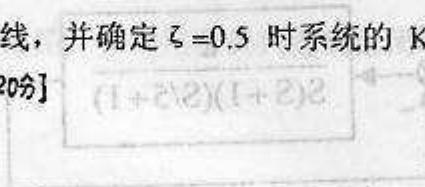 线，并确定 ζ=0.5 时系统的 K
20分]
S(S+1)(S/5+1)